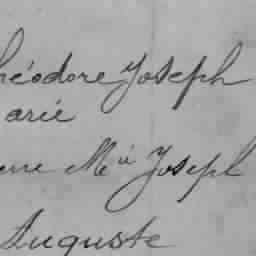 héodore Joseph
arie
erre Mie Joseph
Auguste